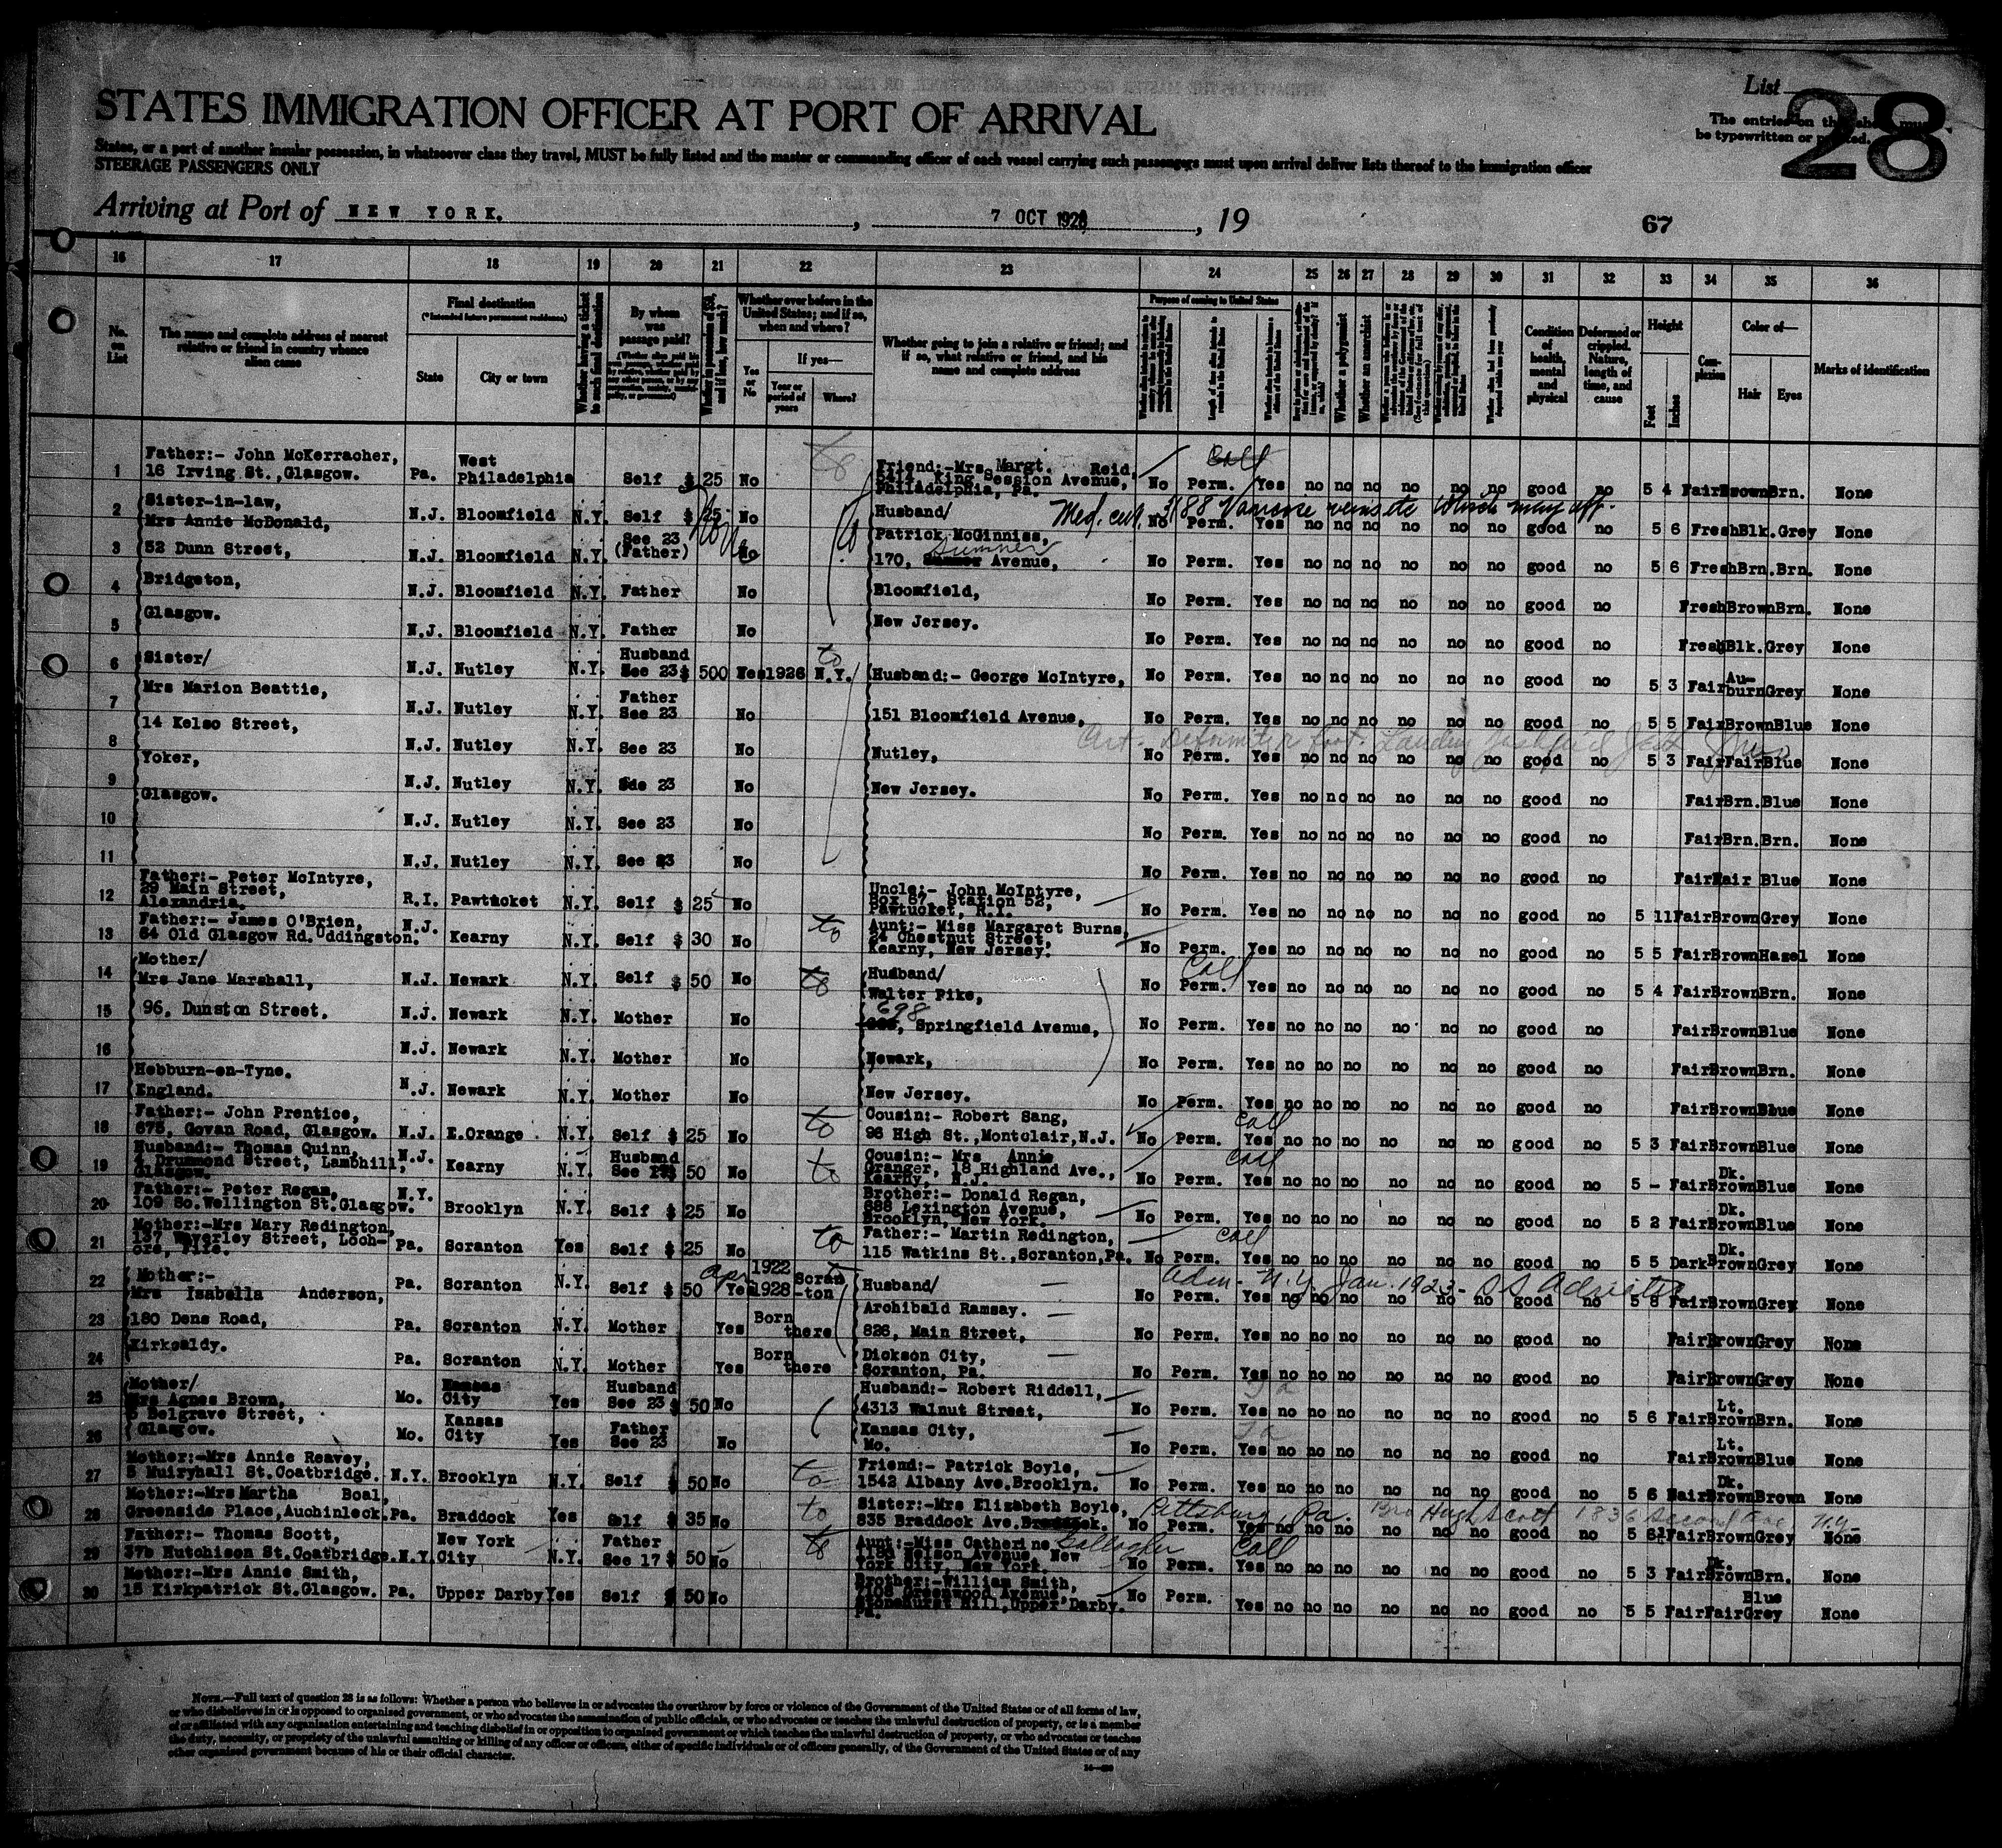 List
28
The entries on this sheet must
be typewritten or printed.
STATES IMMIGRATION OFFICER AT PORT OF ARRIVAL
States, or a part of another insular possession, in whatsoever class they travel, MUST be fully listed and the master or commanding officer of each vessel carrying such passengers must upon arrival deliver lists thereof to the immigration officer
STEERAGE PASSENGERS ONLY
Arriving at Port of NEW YORK. , 7 OCT 1928 , 19
67
16 17 18 19 20 21 22 23 24 25 26 27 28 29 30 31 32 33 34 35 36
No. on List
The name and complete address of nearest relative or friend in country whence alien came
Final destination
(*Intended future permanent residence)
State
City or town
Whether having a ticket to such final destination
By whom was passage paid?
Whether in possession of $50, and if less, how much?
Whether ever before in the United States; and if so, when and where?
Yes or No
If yes—
Year or period of years
Where?
Whether going to join a relative or friend; and if so, what relative or friend, and his name and complete address
Purpose of coming to United States
Whether a polygamist
Whether an anarchist
Condition of health, mental and physical
Deformed or crippled. Nature, length of time, and cause
Height
Feet
Inches
Complexion
Color of—
Hair
Eyes
Marks of identification
1 Father:- John McKerracher, 16 Irving St.,Glasgow. Pa. West Philadelphia Self $ 25 No Friend:-Mrs Margt. Reid, King Session Avenue, Philadelphia, Pa. No Perm. Yes no no no no no no good no 5 4 Fair Brown Brn. None
2 Sister-in-law, N.J. Bloomfield N.Y. Self $ 25 No to Husband/ Med. cert. Varicose veins etc which may aff. No Perm. Yes no no no no no no good no 5 6 Fresh Blk. Grey None
3 Mrs Annie McDonald, 52 Dunn Street, N.J. Bloomfield N.Y. See 23 (Father) No Patrick McGinniss, 170, Sumner Avenue, No Perm. Yes no no no no no no good no 5 6 Fresh Brn. Brn. None
4 Bridgeton, N.J. Bloomfield N.Y. Father No Bloomfield, No Perm. Yes no no no no no no good no Fresh Brown Brn. None
5 Glasgow. N.J. Bloomfield N.Y. Father No New Jersey. No Perm. Yes no no no no no no good no Fresh Blk. Grey None
6 Sister/ N.J. Nutley N.Y. Husband See 23 $ 500 Yes 1926 N.Y. to Husband:- George McIntyre, No Perm. Yes no no no no no no good no 5 3 Fair Auburn Grey None
7 Mrs Marion Beattie, N.J. Nutley N.Y. Father See 23 No 151 Bloomfield Avenue, No Perm. Yes no no no no no no good no 5 5 Fair Brown Blue None
8 14 Kelso Street, N.J. Nutley N.Y. See 23 No Nutley, No Perm. Yes no no no no no no good no 5 3 Fair Fair Blue None
9 Yoker, N.J. Nutley N.Y. See 23 No New Jersey. No Perm. Yes no no no no no no good no Fair Brn. Blue None
10 Glasgow. N.J. Nutley N.Y. See 23 No No Perm. Yes no no no no no no good no Fair Brn. Brn. None
11 N.J. Nutley N.Y. See 23 No No Perm. Yes no no no no no no good no Fair Fair Blue None
12 Father:- Peter McIntyre, 29 Main Street, Alexandria. R.I. Pawtucket N.Y. Self $ 25 No Uncle:- John McIntyre, Box 87, Station 52, Pawtucket, R.I. No Perm. Yes no no no no no no good no 5 11 Fair Brown Grey None
13 Father:- James O'Brien, 54 Old Glasgow Rd. Uddingston. N.J. Kearny N.Y. Self $ 30 No to Aunt:- Miss Margaret Burns, 24 Chestnut Street, Kearny, New Jersey. No Perm. Yes no no no no no no good no 5 5 Fair Brown Hazel None
14 Mother/ Mrs Jane Marshall, N.J. Newark N.Y. Self $ 50 No to Husband/ Walter Pike, Call No Perm. Yes no no no no no no good no 5 4 Fair Brown Brn. None
15 96, Dunston Street. N.J. Newark N.Y. Mother No 698 Springfield Avenue, No Perm. Yes no no no no no no good no Fair Brown Blue None
16 N.J. Newark N.Y. Mother No Newark, No Perm. Yes no no no no no no good no Fair Brown Brn. None
17 Hebburn-on-Tyne. England. N.J. Newark N.Y. Mother No New Jersey. No Perm. Yes no no no no no no good no Fair Brown Blue None
18 Father:- John Prentice, 675, Govan Road, Glasgow. N.J. E.Orange N.Y. Self $ 25 No to Cousin:- Robert Sang, 96 High St.,Montclair,N.J. Call No Perm. Yes no no no no no no good no 5 3 Fair Brown Blue None
19 Husband:- Thomas Quinn, 4 Drummond Street, Lambhill, Glasgow. N.J. Kearny N.Y. Husband See 17 $ 50 No to Cousin:- Mrs Annie Granger, 18 Highland Ave., Kearny, N.J. Call No Perm. Yes no no no no no no good no 5 - Fair Dk. Brown Blue None
20 Father:- Peter Regan, 109 So.Wellington St.Glasgow. N.Y. Brooklyn N.Y. Self $ 25 No Brother:- Donald Regan, 688 Lexington Avenue, Brooklyn, New York. No Perm. Yes no no no no no no good no 5 2 Fair Dk. Brown Blue None
21 Mother:-Mrs Mary Redington, 137 Waverley Street, Lochore, Fife. Pa. Scranton Yes Self $ 25 No to Father:- Martin Redington, 115 Watkins St.,Scranton,Pa. Call No Perm. Yes no no no no no no good no 5 5 Dark Dk. Brown Grey None
22 Mother:- Mrs Isabella Anderson, Pa. Scranton N.Y. Self $ 50 Apr Yes 1922 1928 Scranton Husband/ Adm. N.Y. Jan. 1923 - SS Adriatic No Perm. Yes no no no no no no good no 5 8 Fair Brown Grey None
23 180 Dens Road, Pa. Scranton N.Y. Mother Yes Born there Archibald Ramsay. 826, Main Street, No Perm. Yes no no no no no no good no Fair Brown Grey None
24 Kirkcaldy. Pa. Scranton N.Y. Mother Yes Born there Dickson City, Scranton, Pa. No Perm. Yes no no no no no no good no Fair Brown Grey None
25 Mother/ Mrs Agnes Brown, Mo. Kansas City Yes Husband See 23 $ 50 No Husband:- Robert Riddell, 4313 Walnut Street, No Perm. Yes no no no no no no good no 5 6 Fair Lt. Brown Brn. None
26 5 Belgrave Street, Glasgow. Mo. Kansas City Yes Father See 23 No Kansas City, Mo. No Perm. Yes no no no no no no good no Fair Lt. Brown Blue None
27 Mother:-Mrs Annie Reavey, 5 Muiryhall St.Coatbridge. N.Y. Brooklyn N.Y. Self $ 50 No to Friend:- Patrick Boyle, 1542 Albany Ave.Brooklyn. No Perm. Yes no no no no no no good no 5 6 Hair Dk. Brown Brown None
28 Mother:-Mrs Martha Boal, Greenside Place,Auchinleck. Pa. Braddock Yes Self $ 35 No to Sister:-Mrs Elizabeth Boyle, 835 Braddock Ave.Braddock. Pittsburg, Pa. Bro Hugh Scott 1836 Second Ave N.Y. No Perm. Yes no no no no no no good no 5 8½ Fair Brown Grey None
29 Father:- Thomas Scott, 37b Hutchison St.Coatbridge. N.Y. New York City N.Y. Father See 17 $ 50 No to Aunt:-Miss Catherine Gallagher Nelson Avenue, New York City, New York. Call No Perm. Yes no no no no no no good no 5 3 Fair Dk. Brown Brn. None
30 Mother:-Mrs Annie Smith, 15 Kirkpatrick St.Glasgow. Pa. Upper Darby Yes Self $ 50 No Brother:-William Smith, 7108 Greenwood Avenue, Stonehurst Hill,Upper Darby. Pa. No Perm. Yes no no no no no no good no 5 5 Fair Fair Blue Grey None
NOTE.—Full text of question 28 is as follows: Whether a person who believes in or advocates the overthrow by force or violence of the Government of the United States or of all forms of law,
or who disbelieves in or is opposed to organised government, or who advocates the assassination of public officials, or who advocates or teaches the unlawful destruction of property, or is a member
of or affiliated with any organization entertaining and teaching disbelief in or opposition to organised government or which teaches the unlawful destruction of property, or who advocates or teaches
the duty, necessity, or propriety of the unlawful assaulting or killing of any officer or officers, either of specific individuals or of officers generally, of the Government of the United States or of any
other organised government because of his or their official character.